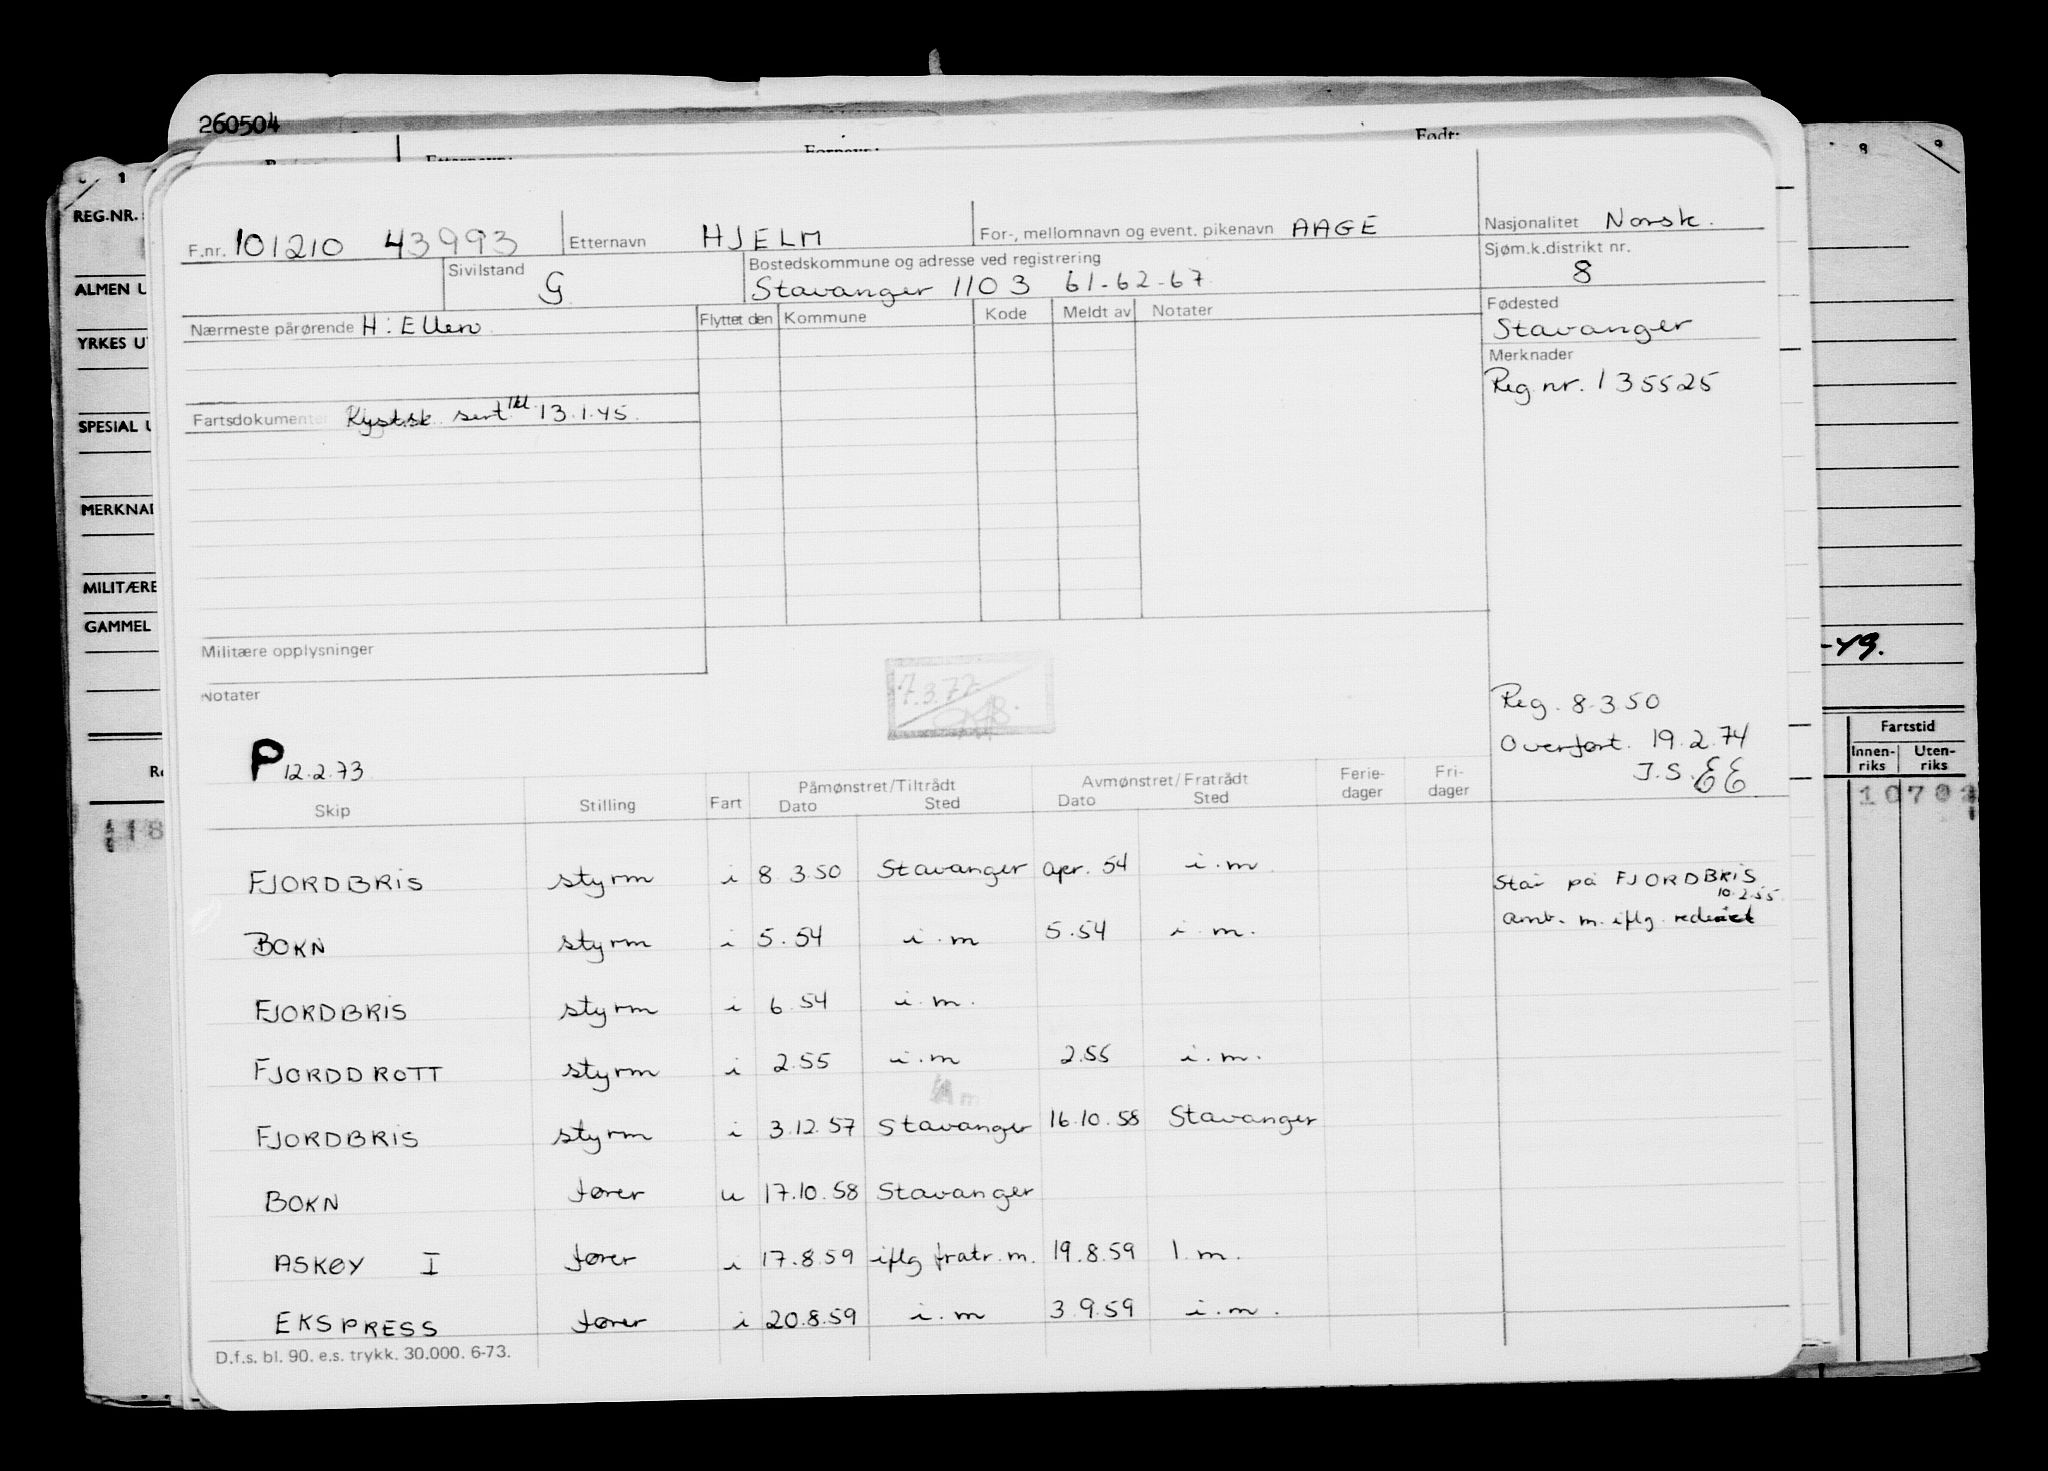 260504
Født:
0 1 8 9
REG.NR.
F.nr. 101210 43993 Etternavn HJELM For-, mellomnavn og event. pikenavn AAGE Nasjonalitet Norsk.
Sivilstand G Bostedskommune og adresse ved registrering Sjøm.k.distrikt nr.
Stavanger 1103 61-62-67 8
ALMEN U
Nærmeste pårørende H: Ellen Flyttet den Kommune Kode Meldt av Notater Fødested
Stavanger
YRKES U
Merknader
Reg nr. 135525
Fartsdokumenter Kystsk. sert. 13.1.45.
SPESIAL U
MERKNAD
MILITÆRE
GAMMEL
-49.
Militære opplysninger
Notater
7.3.77
Reg. 8.3.50
Overført. 19.2.74
J.S. EE
P 12.2.73
Fartstid
Innen-riks Uten-riks
Skip Stilling Fart Påmønstret/Tiltrådt Dato Sted Avmønstret/Fratrådt Dato Sted Ferie-dager Fri-dager
FJORDBRIS styrm i 8 3.50 Stavanger apr. 54 i.m.
Står på FJORDBRIS
10.2.55.
anb. m. iflg. rederiet
BOKN styrm i 5.54 i.m 5.54 i.m.
FJORDBRIS styrm i 6.54 i.m.
FJORDDROTT styrm i 2.55 i.m 2.55 i.m.
FJORDBRIS styrm i 3.12.57 Stavanger 16.10.58 Stavanger
BOKN fører u 17.10.58 Stavanger
ASKØY I fører i 17.8.59 iflg fratr.m. 19.8.59 I.m.
EKSPRESS fører i 20.8.59 i.m 3.9.59 i.m.
D.f.s. bl. 90. e.s. trykk. 30.000. 6-73.